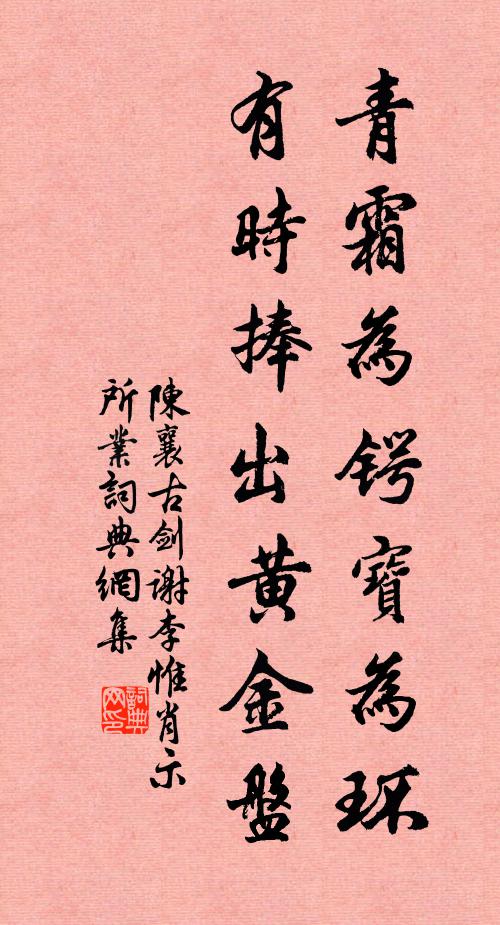 青霜為锷寶為环
有時捧出黄金盤
陳襄古劍谢李惟肖示
所業詞典網集
詞典
网印